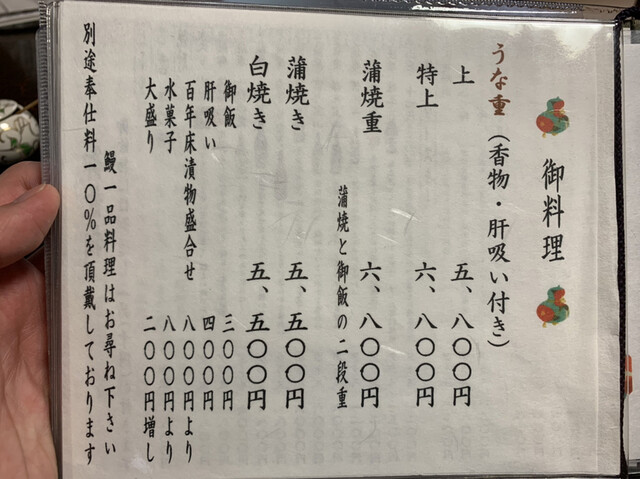 御料理
うな重（香物・肝吸い付き）
上　五、八〇〇円
特上　六、八〇〇円
蒲焼重　六、八〇〇円
蒲焼と御飯の二段重
蒲焼き　五、五〇〇円
白焼き　五、五〇〇円
御飯　三〇〇円
肝吸い　四〇〇円
百年床漬物盛合せ　八〇〇円より
水菓子　八〇〇円より
大盛り　二〇〇円増し
鰻一品料理はお尋ね下さい
別途奉仕料一〇％を頂戴しております